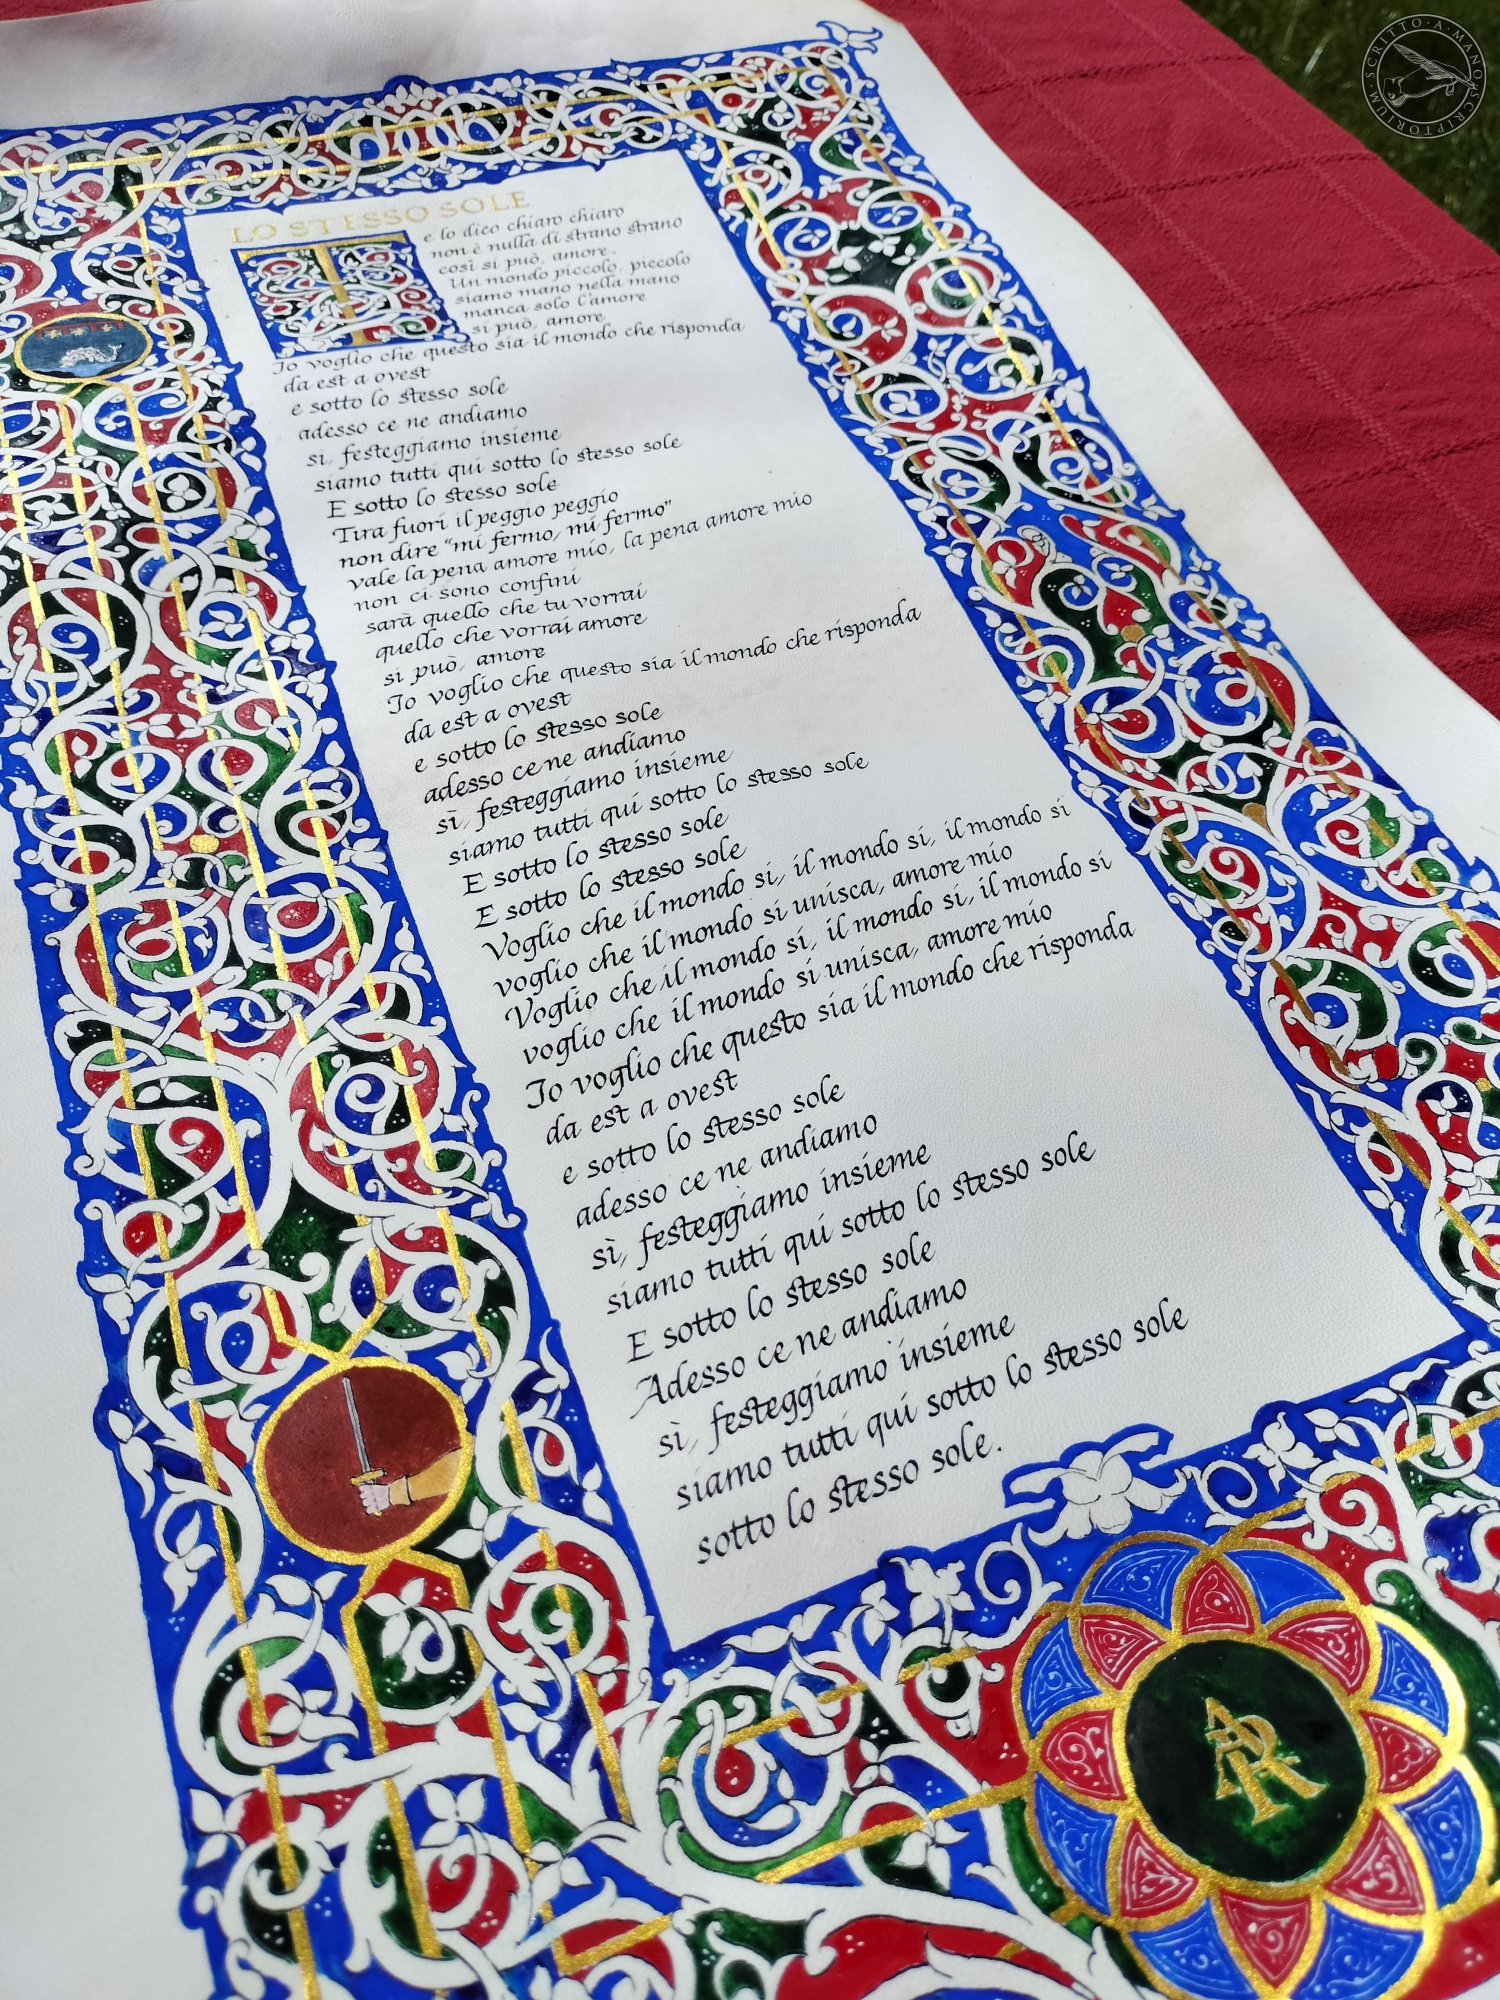 LO STESSO SOLE
Te lo dico chiaro chiaro
non è nulla di strano strano
così si può, amore.
Un mondo piccolo, piccolo
siamo mano nella mano
manca solo l'amore
si può, amore
Io voglio che questo sia il mondo che risponda
da est a ovest
e sotto lo stesso sole
adesso ce ne andiamo
sì, festeggiamo insieme
siamo tutti qui sotto lo stesso sole
E sotto lo stesso sole
Tira fuori il peggio peggio
non dire "mi fermo, mi fermo"
vale la pena amore mio, la pena amore mio
non ci sono confini
sarà quello che tu vorrai
quello che vorrai amore
si può, amore
Io voglio che questo sia il mondo che risponda
da est a ovest
e sotto lo stesso sole
adesso ce ne andiamo
sì, festeggiamo insieme
siamo tutti qui sotto lo stesso sole
E sotto lo stesso sole
E sotto lo stesso sole
Voglio che il mondo si, il mondo si, il mondo si
voglio che il mondo si unisca, amore mio
Voglio che il mondo si, il mondo si, il mondo si
voglio che il mondo si unisca, amore mio
Io voglio che questo sia il mondo che risponda
da est a ovest
e sotto lo stesso sole
adesso ce ne andiamo
sì, festeggiamo insieme
siamo tutti qui sotto lo stesso sole
E sotto lo stesso sole
Adesso ce ne andiamo
sì, festeggiamo insieme
siamo tutti qui sotto lo stesso sole
sotto lo stesso sole.
AR
SCRITTO·A·MANO·SCRIPTORIUM